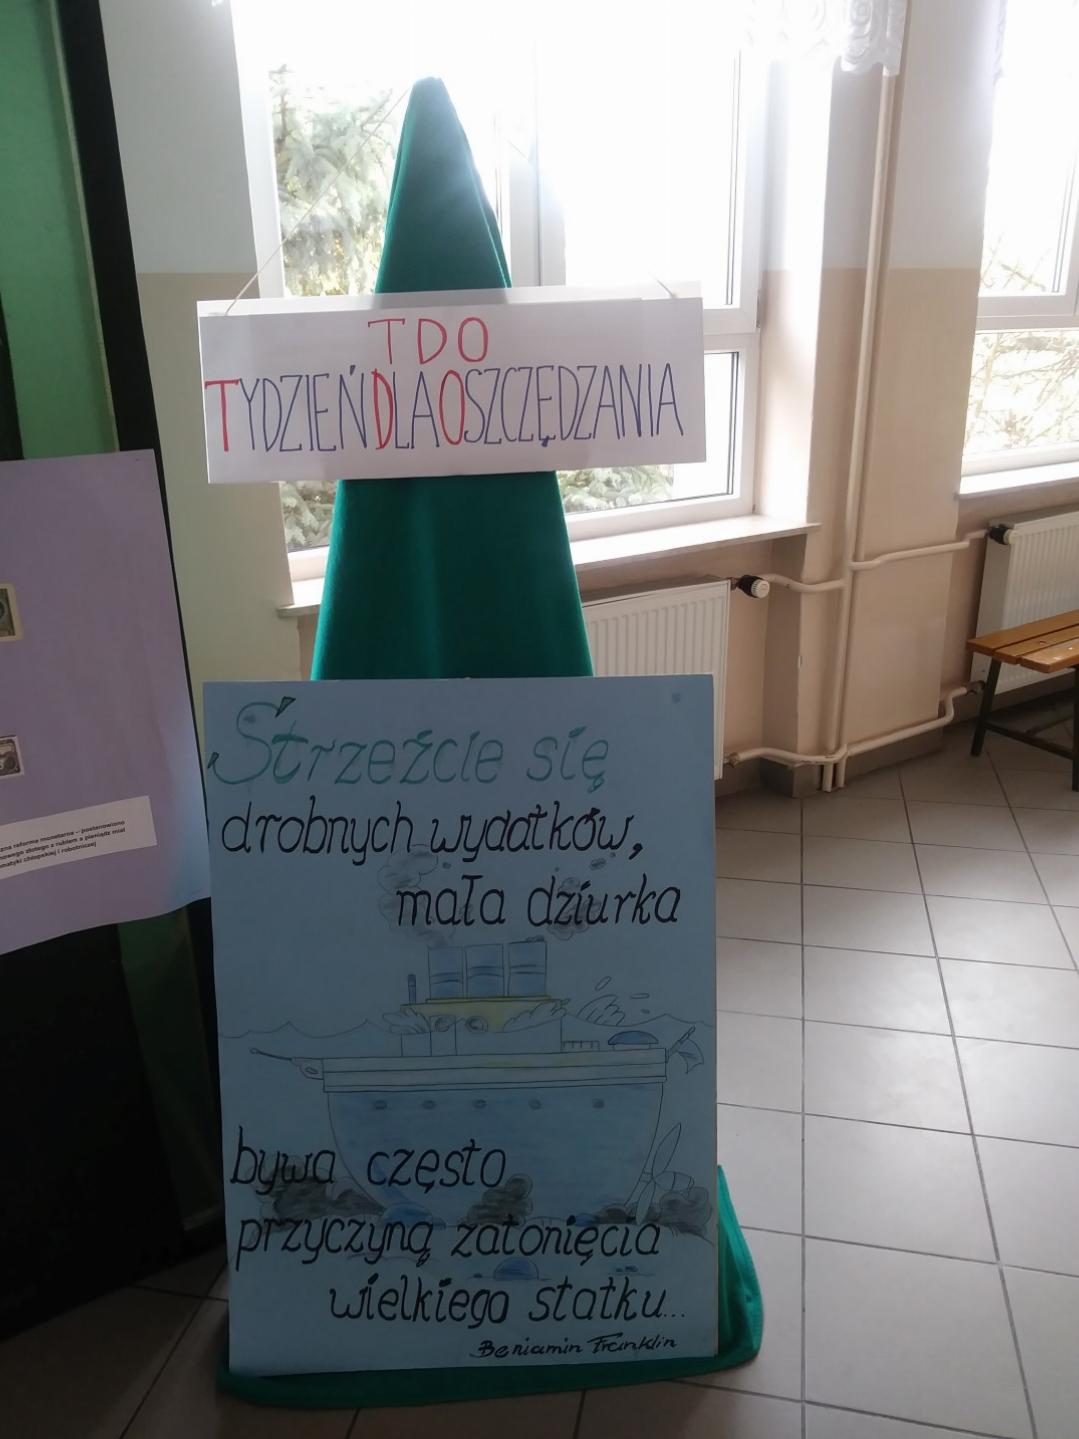 TDO
TYDZIEŃ DLA OSZCZĘDZANIA
Strzeżcie się
drobnych wydatków,
mała dziurka
bywa często
przyczyną zatonięcia
wielkiego statku...
Beniamin Franklin
zna reforma monetarna – postanowiono
nowego złotego z rublem a pieniądz miał
matyki chłopskiej i robotniczej